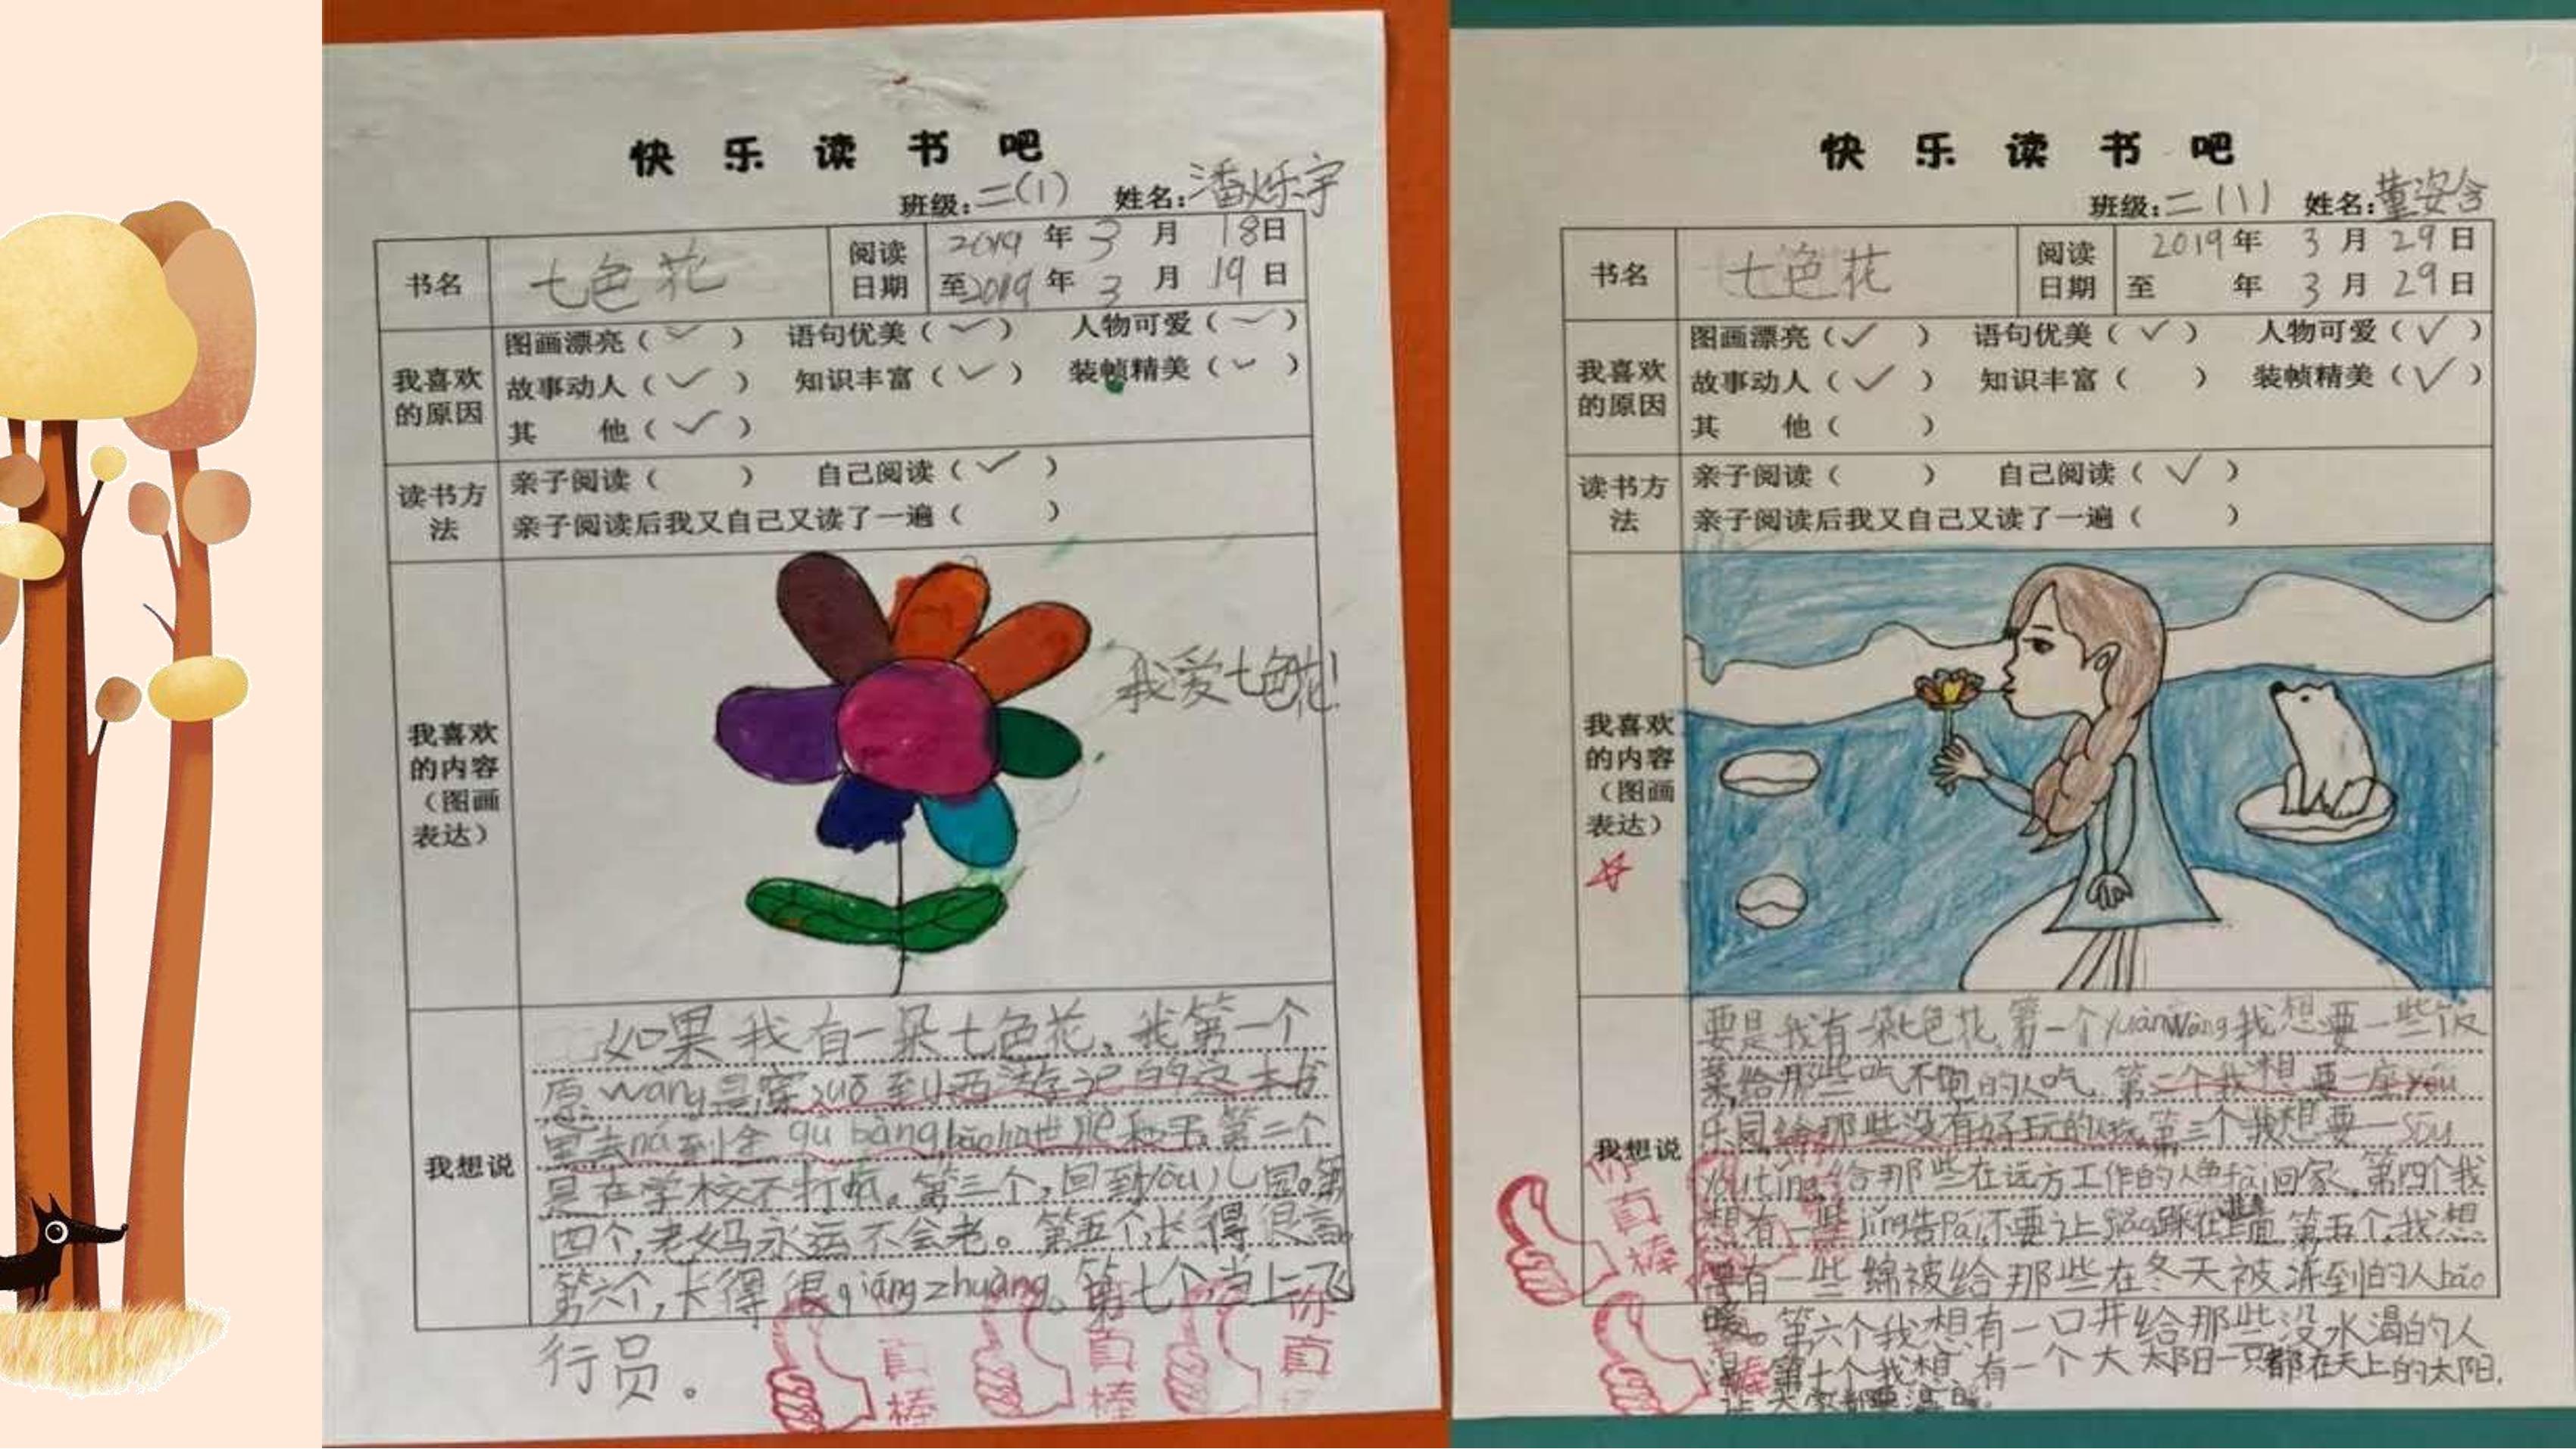 快乐读书吧
班级:二(1) 姓名:潘烁宇
书名 七色花 阅读日期 2019年3月18日
至2019年3月19日
我喜欢的原因
图画漂亮(✓) 语句优美(✓) 人物可爱(✓)
故事动人(✓) 知识丰富(✓) 装帧精美(✓)
其 他(✓)
读书方法
亲子阅读( ) 自己阅读(✓)
亲子阅读后我又自己又读了一遍( )
我喜欢的内容(图画表达)
我爱七色花!
我想说
如果我有一朵七色花,我第一个
愿wàng是穿 到 西游记的这本书
里去ná到金gū bàng 和平。第二个
是在学校不打 。第三个,回到yòu儿园。第
四个,老妈永远不会老。第五个,长得很高。
第六个,长得很qiáng zhuàng。第七个当上飞
行员。
真棒
真棒
你真
快乐读书吧
班级:二(1) 姓名:董安含
书名 七色花 阅读日期 2019年3月29日
至 年3月29日
我喜欢的原因
图画漂亮(✓) 语句优美(✓) 人物可爱(✓)
故事动人(✓) 知识丰富( ) 装帧精美(✓)
其 他( )
读书方法
亲子阅读( ) 自己阅读(✓)
亲子阅读后我又自己又读了一遍( )
我喜欢的内容(图画表达)
我想说
要是我有一朵七色花,第一个yuànwàng我想要一些饭
菜给那些吃不饱的人吃,第二个我想要一座yóu
乐园给那些没有好玩的人玩,第三个我想要一sōu
yóu tǐng给那些在远方工作的人 回家,第四个我
想有一些jǐng告pái,不要让 踩在 面,第五个,我想
要有一些绵被给那些在冬天被冻到的人bǎo
暖。第六个我想有一口井给那些没水渴的人
喝,第七个我想有一个大太阳一只都在天上的太阳,
让大家都
你真棒